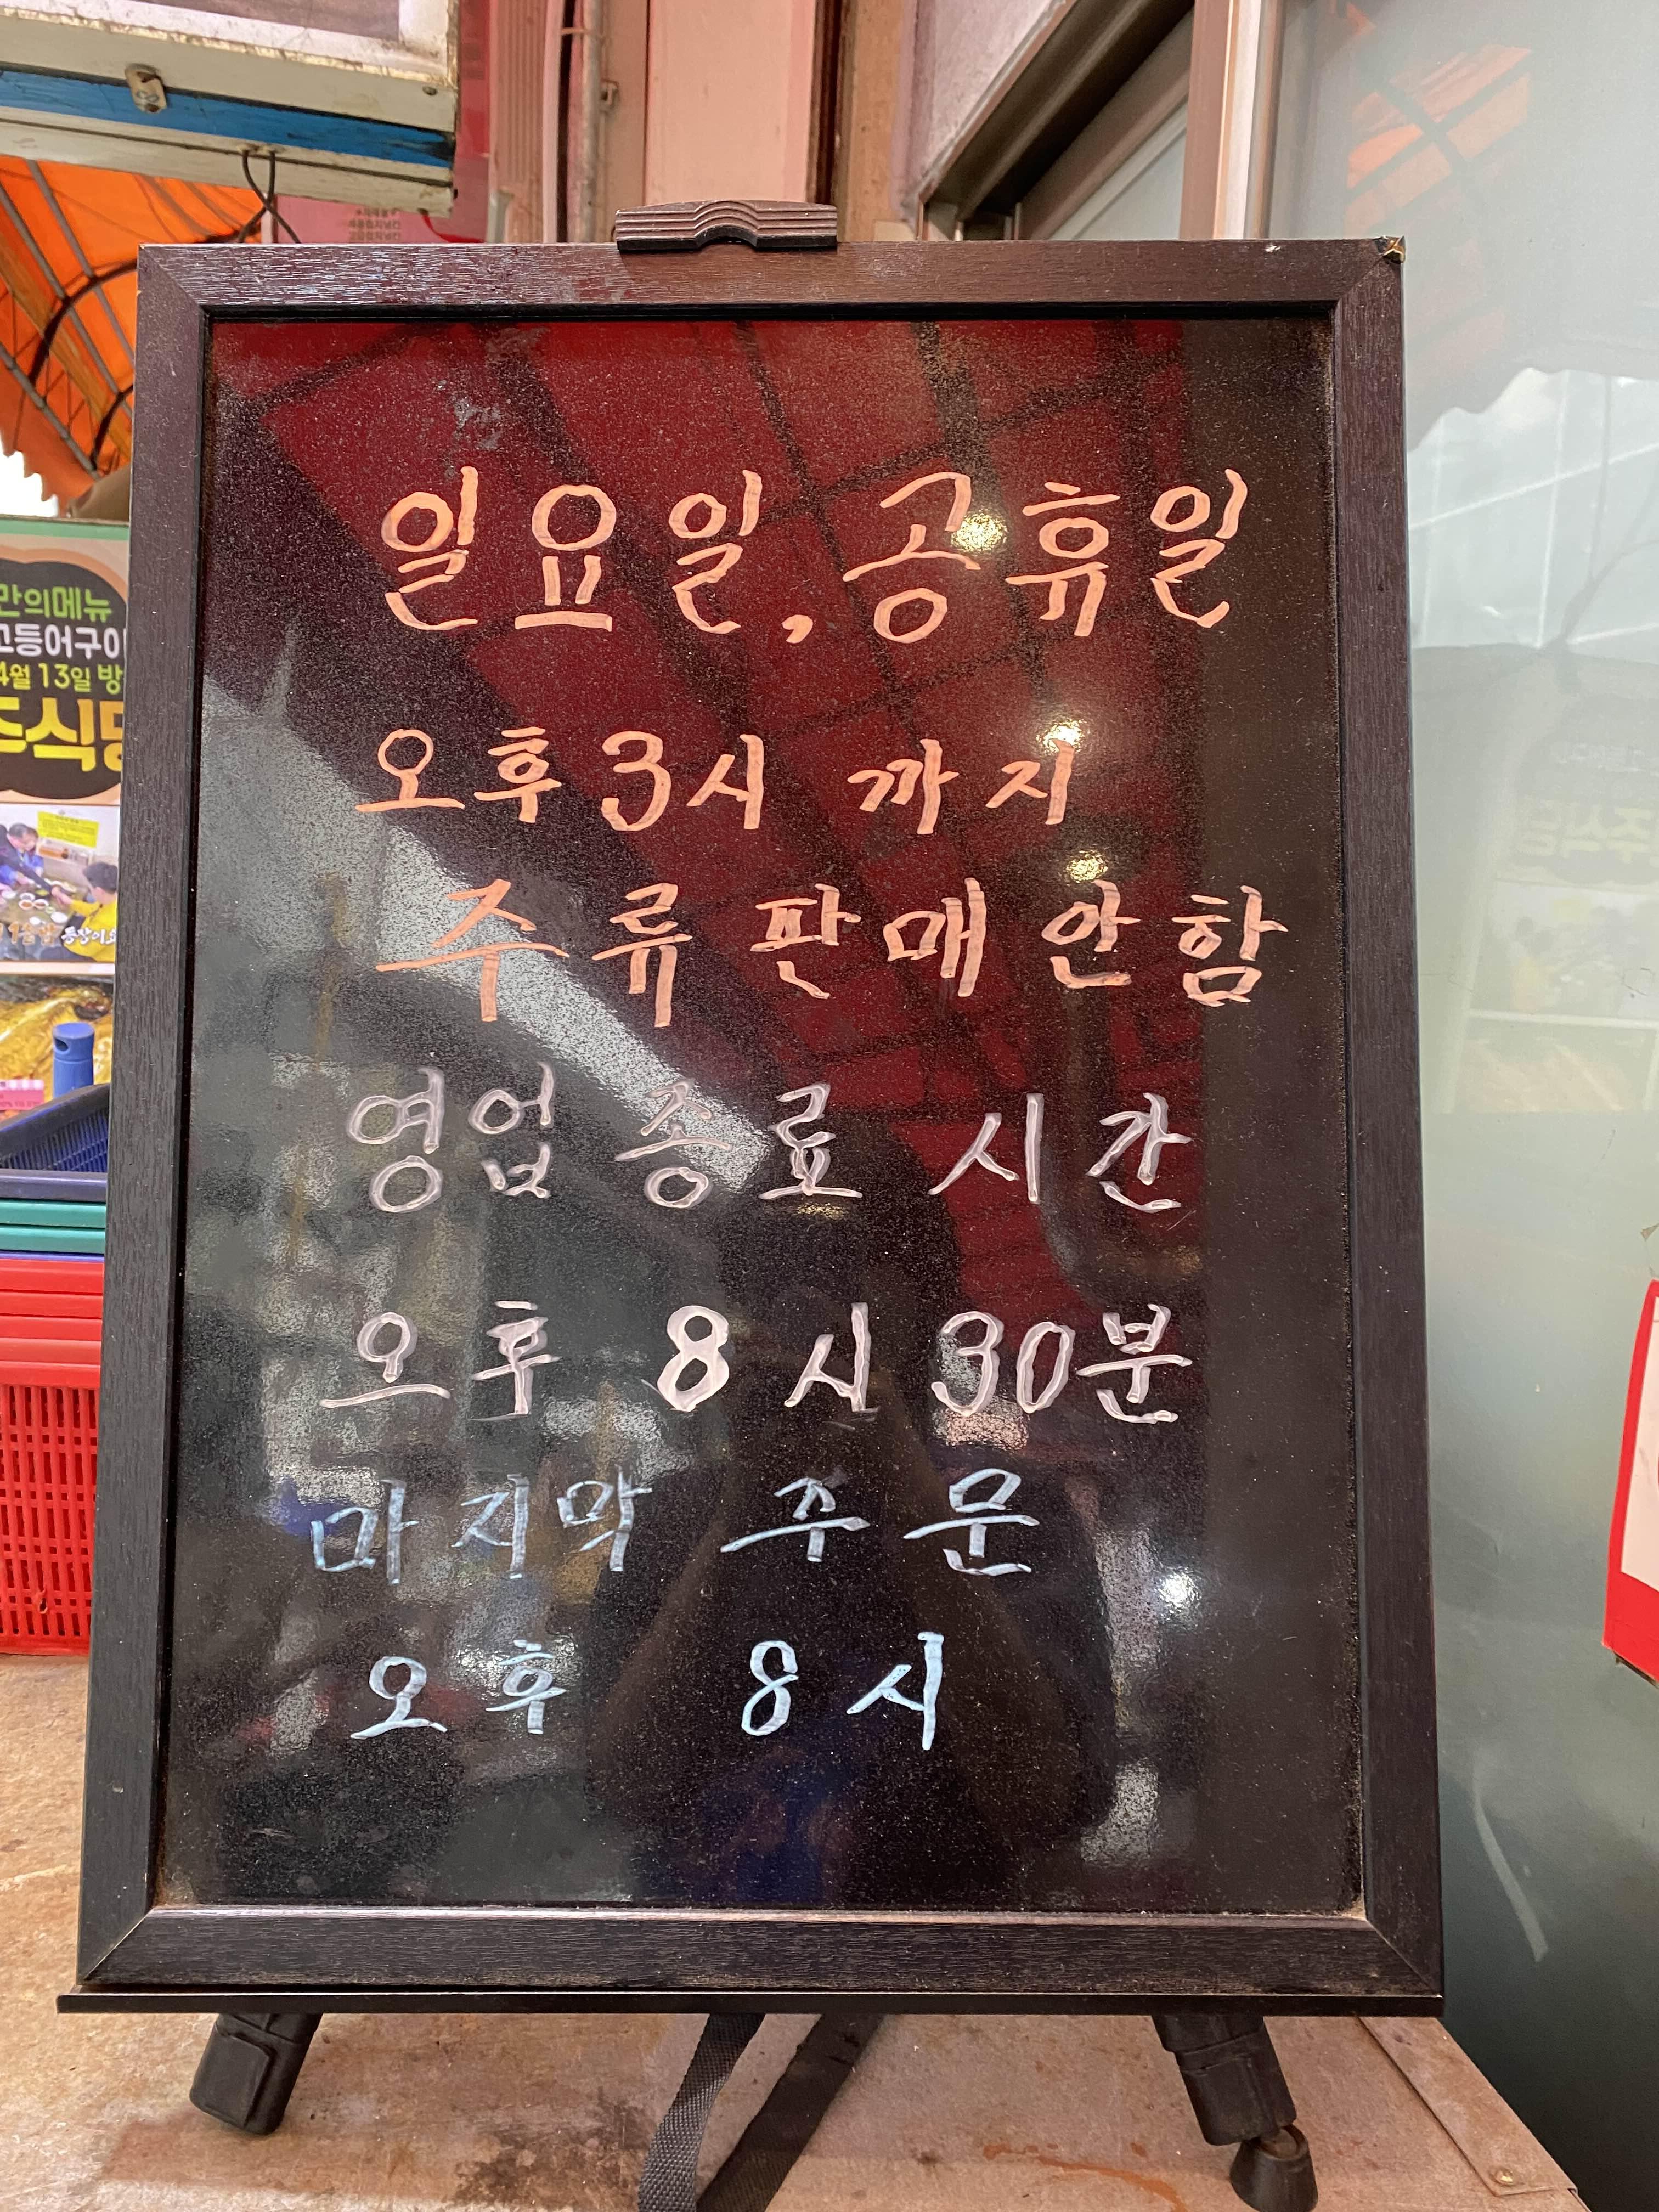 일요일, 공휴일
오후 3시 까지
주류 판매 안함
영업 종료 시간
오후 8시 30분
마지막 주문
오후 8시
만의메뉴
고등어구이
4월 13일 방
주식당